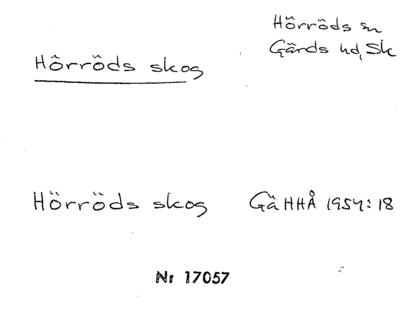 Hörröds sn
Gärds hd, Sk
Hörröds skog
Hörröds skog GäHHÅ 1954:18
Nr 17057